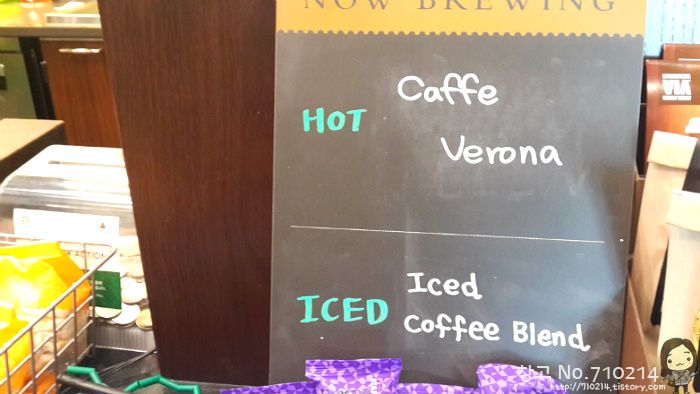 NOW BREWING
HOT
Caffe
Verona
ICED
Iced
Coffee Blend
VIA
창고 No.710214
http://710214.tistory.com